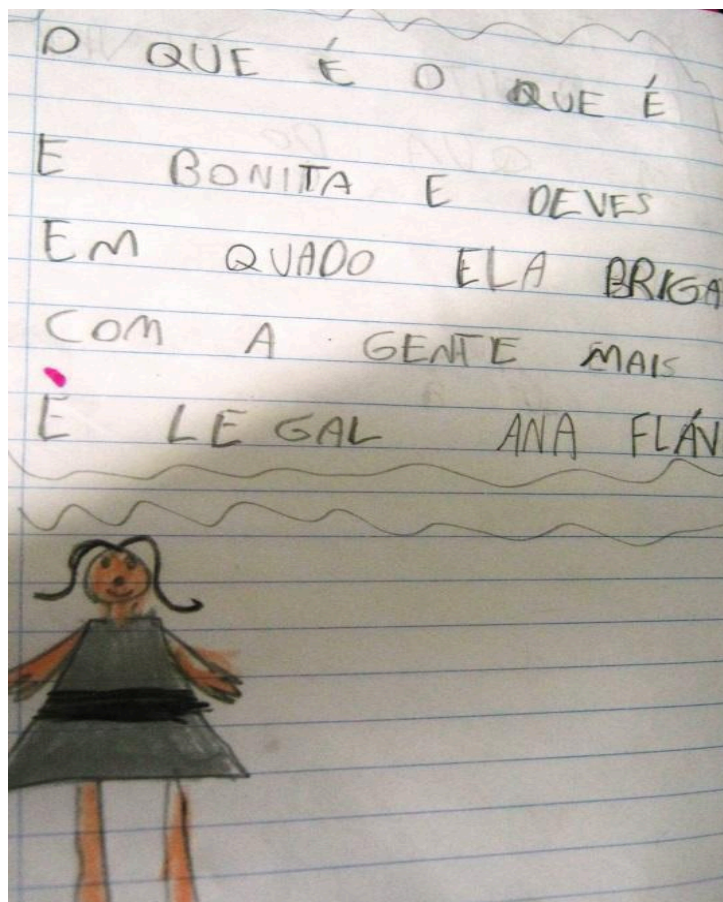 O QUE É O QUE É
E BONITA E DEVES
EM QUADO ELA BRIGA
COM A GENTE MAIS
É LEGAL ANA FLÁV